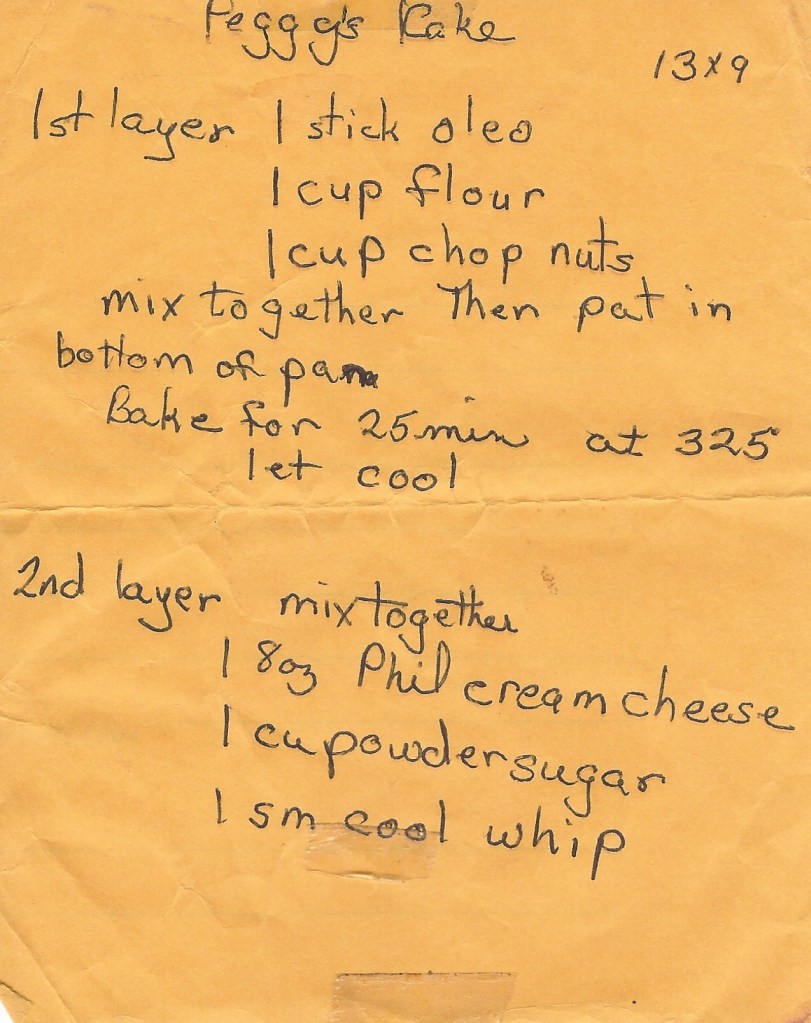 Peggy's Cake
13x9
1st layer 1 stick oleo
1 cup flour
1 cup chop nuts
mix together Then pat in
bottom of pan
Bake for 25 min at 325°
let cool
2nd layer mix together
1 8oz Phil cream cheese
1 cu powder sugar
1 sm cool whip